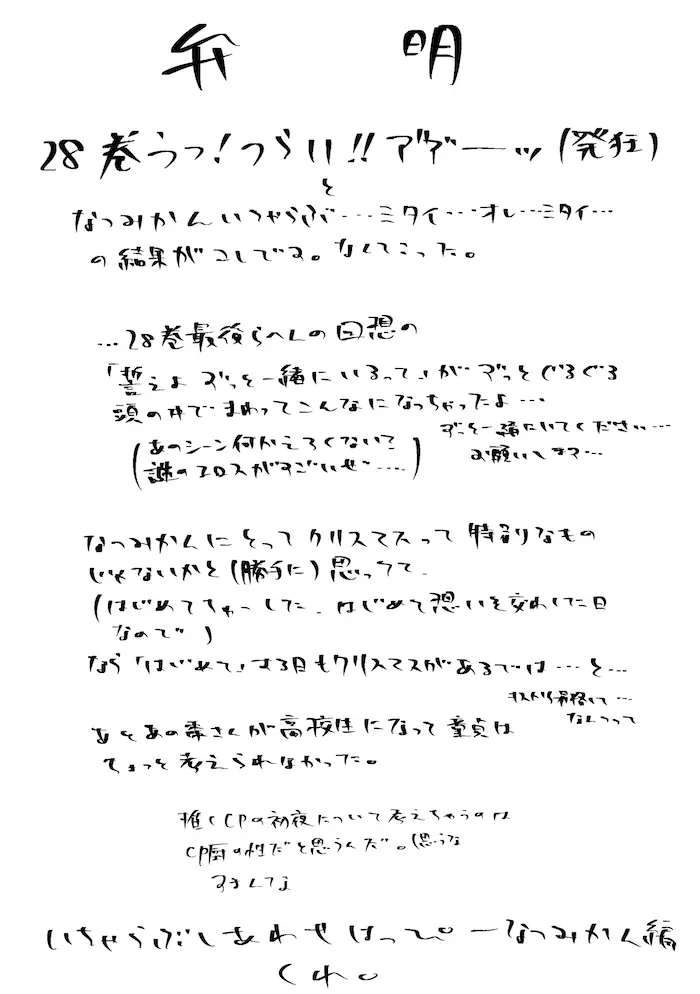 弁明
28巻うっ!つらい!!アヴァーーッ(発狂)
と
なつみかんいちゃらぶ…ミタイ…オレ…ミタイ…
の結果がコレです。なんてこった。
…28巻最後らへんの回想の
「誓えよ ずっと一緒にいるって」がずっとぐるぐる
頭の中でまわってこんなになっちゃったよ…
(あのシーン何かえろくない?
謎のエロスがすごいぜ……)
ずっと一緒にいてください…
お願いします…
なつみかんにとってクリスマスって特別なもの
じゃないかと(勝手に)思ってて、
(はじめてちゅーした、はじめて想いを交わした日
なので)
なら「はじめて」する日もクリスマスがあるでは…と…
昇格して…
なんつって
あとあの棗さんが高校生になって童貞は
ちょっと考えられなかった。
推しCPの初夜について考えちゃうのは
CP厨の性だと思うんだ。(思うな
すみんてな
いちゃらぶしあわせはっぴーなつみかん編
くれ。